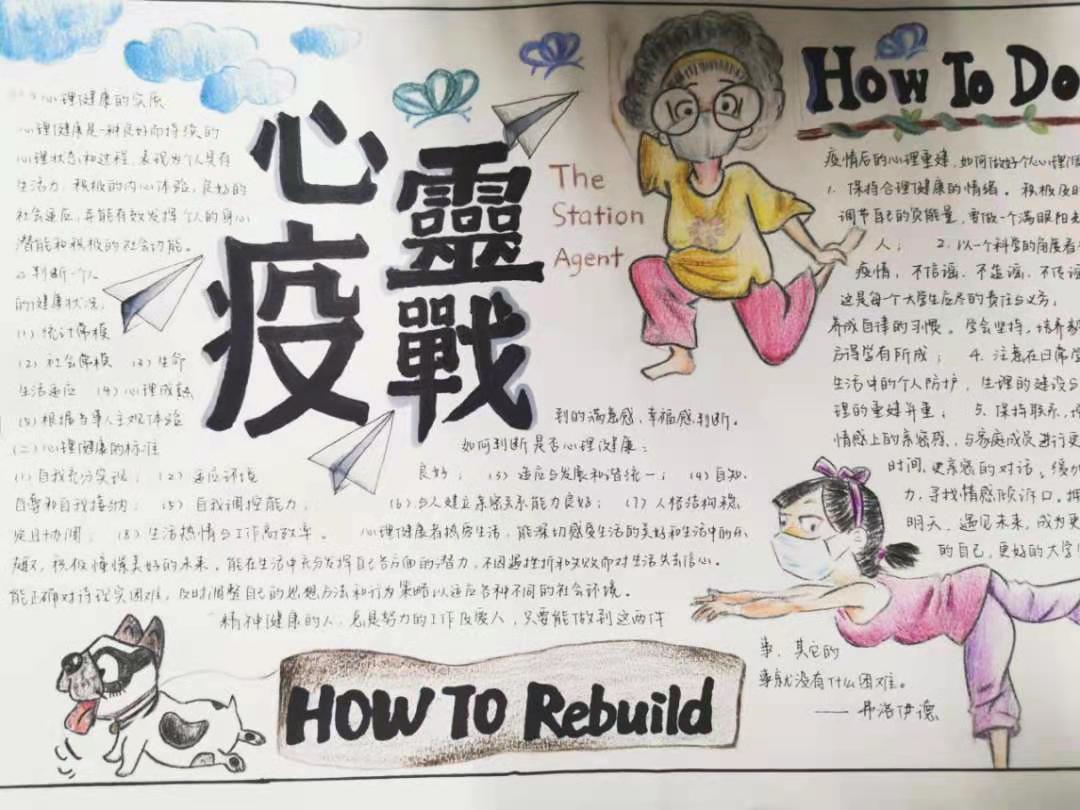 心理健康的实质
心理健康是一种良好而持续的
心理状态和过程，表现为个人具有
生活力，积极的内心体验，良好的
社会适应，并能有效发挥个人的身心
潜能和积极的社会功能。
2.判断一个人
的健康状况：
(1) 统计常模
(2) 社会常模 (3) 生命
生活适应 (4) 心理成熟
(5) 根据当事人主观体验
到的满意感，幸福感判断。
(二) 心理健康的标准
如何判断是否心理健康：
(1) 自我充分实现； (2) 适应环境
良好； (3) 适应与发展和谐统一； (4) 自知，
自尊和自我接纳； (5) 自我调控能力；
(6) 与人建立亲密关系能力良好； (7) 人格结构稳
定且协调； (8) 生活热情与工作高效率。
心理健康者热爱生活，能深切感受生活的美好和生活中的乐
趣，积极憧憬美好的未来。能在生活中充分发挥自己各方面的潜力，不因遇挫折和失败而对生活失去信心。
能正确对待现实困难，及时调整自己的思想方法和行为策略以适应各种不同的社会环境。
精神健康的人，总是努力的工作及爱人，只要能做到这两件
事，其它的
事就没有什么困难。
——弗洛伊德
心靈
疫戰
The
Station
Agent
HOW TO Rebuild
HOW TO DO
疫情后的心理重建，如何做好个人心理健
1. 保持合理健康的情绪。积极及时
调节自己的负能量，要做一个满眼阳光
人； 2. 以一个科学的角度看
疫情，不信谣，不造谣，不传谣
这是每个大学生应尽的责任与义务；
养成自律的习惯。学会坚持，培养
方得学有所成； 4. 注意在日常学
生活中的个人防护，生理的建设与
理的重建并重； 5. 保持联系，
情感上的亲密感，与家庭成员进行更
时间，更亲密的对话。缓
力，寻找情感倾诉口。拥
明天，遇见未来，成为更
的自己，更好的大学